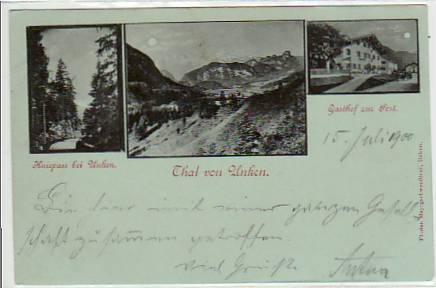 Kniepass bei Unken.
Thal von Unken.
Gasthof zur Post.
15. Juli 1900
Bin hier mit einer ganzen Gesell
schaft zusammen getroffen.
Viel Grüße Anton